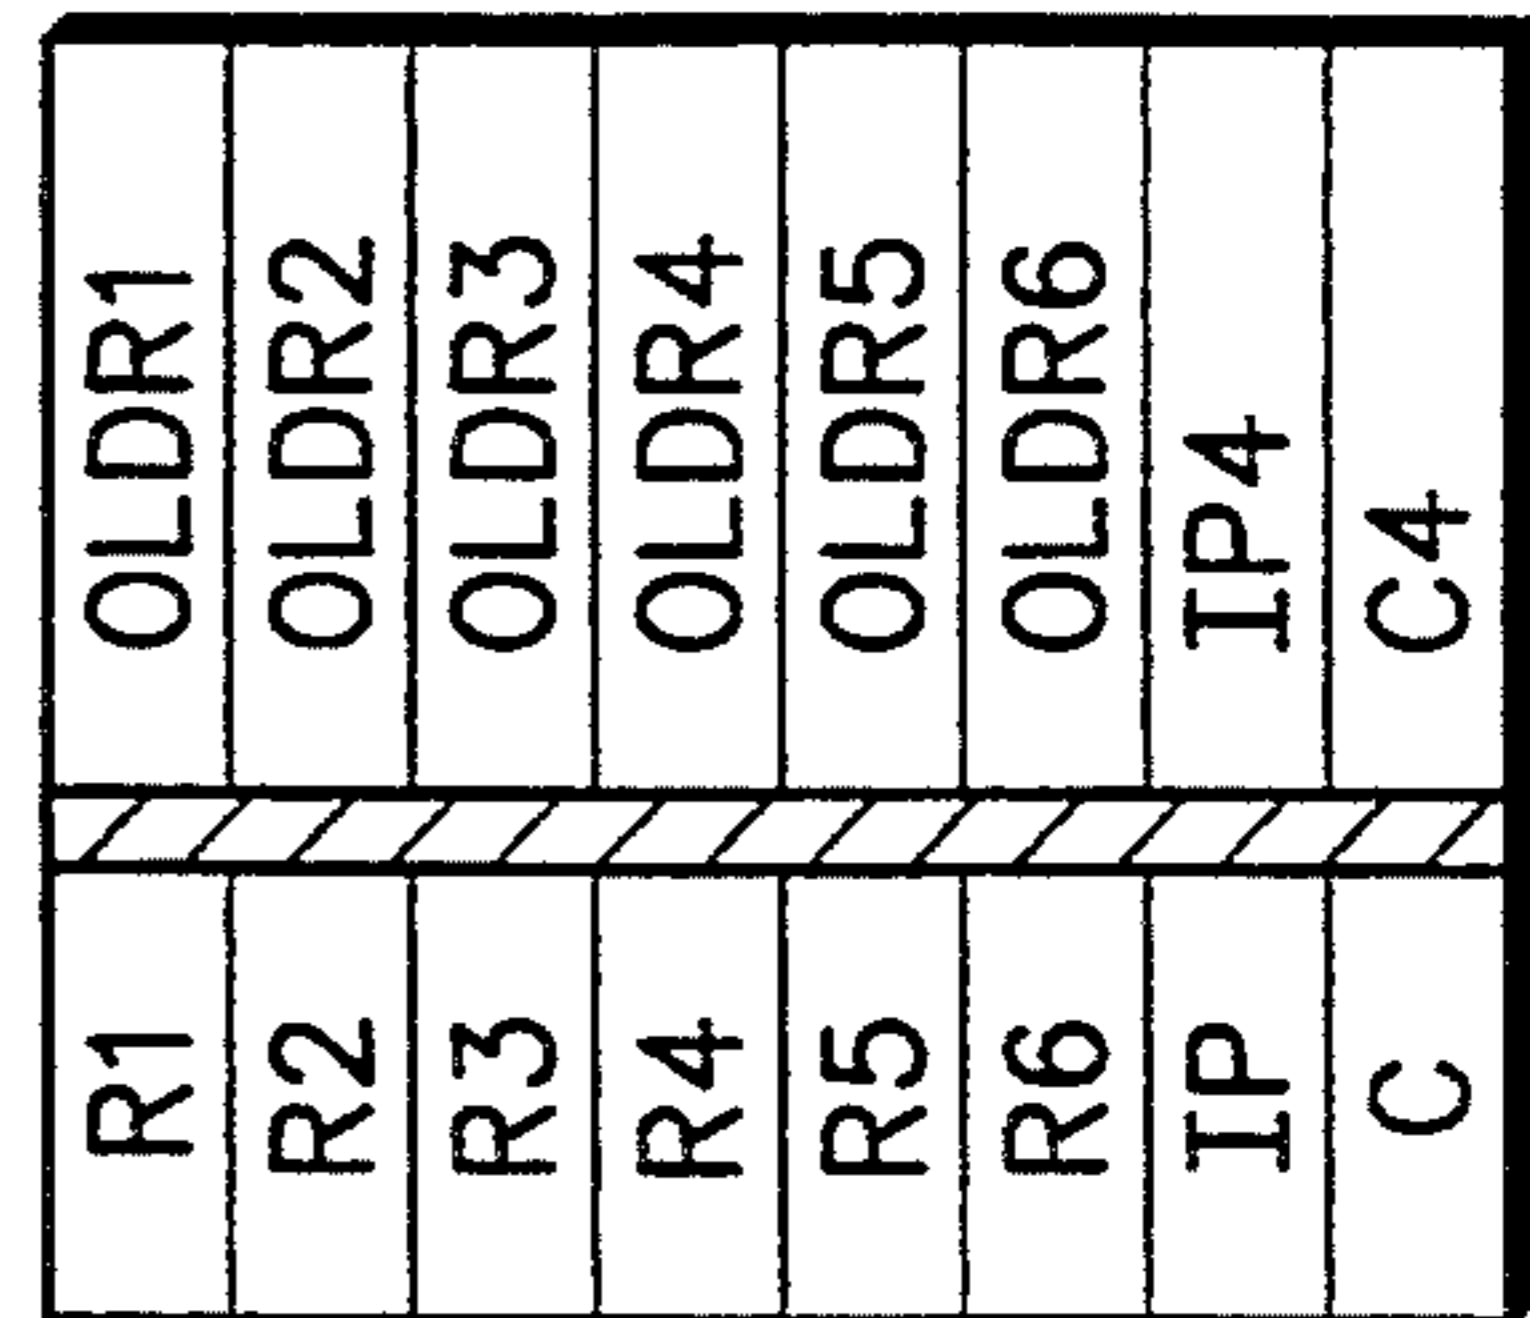 R1 OLDR1
R2 OLDR2
R3 OLDR3
R4 OLDR4
R5 OLDR5
R6 OLDR6
IP IP4
C C4